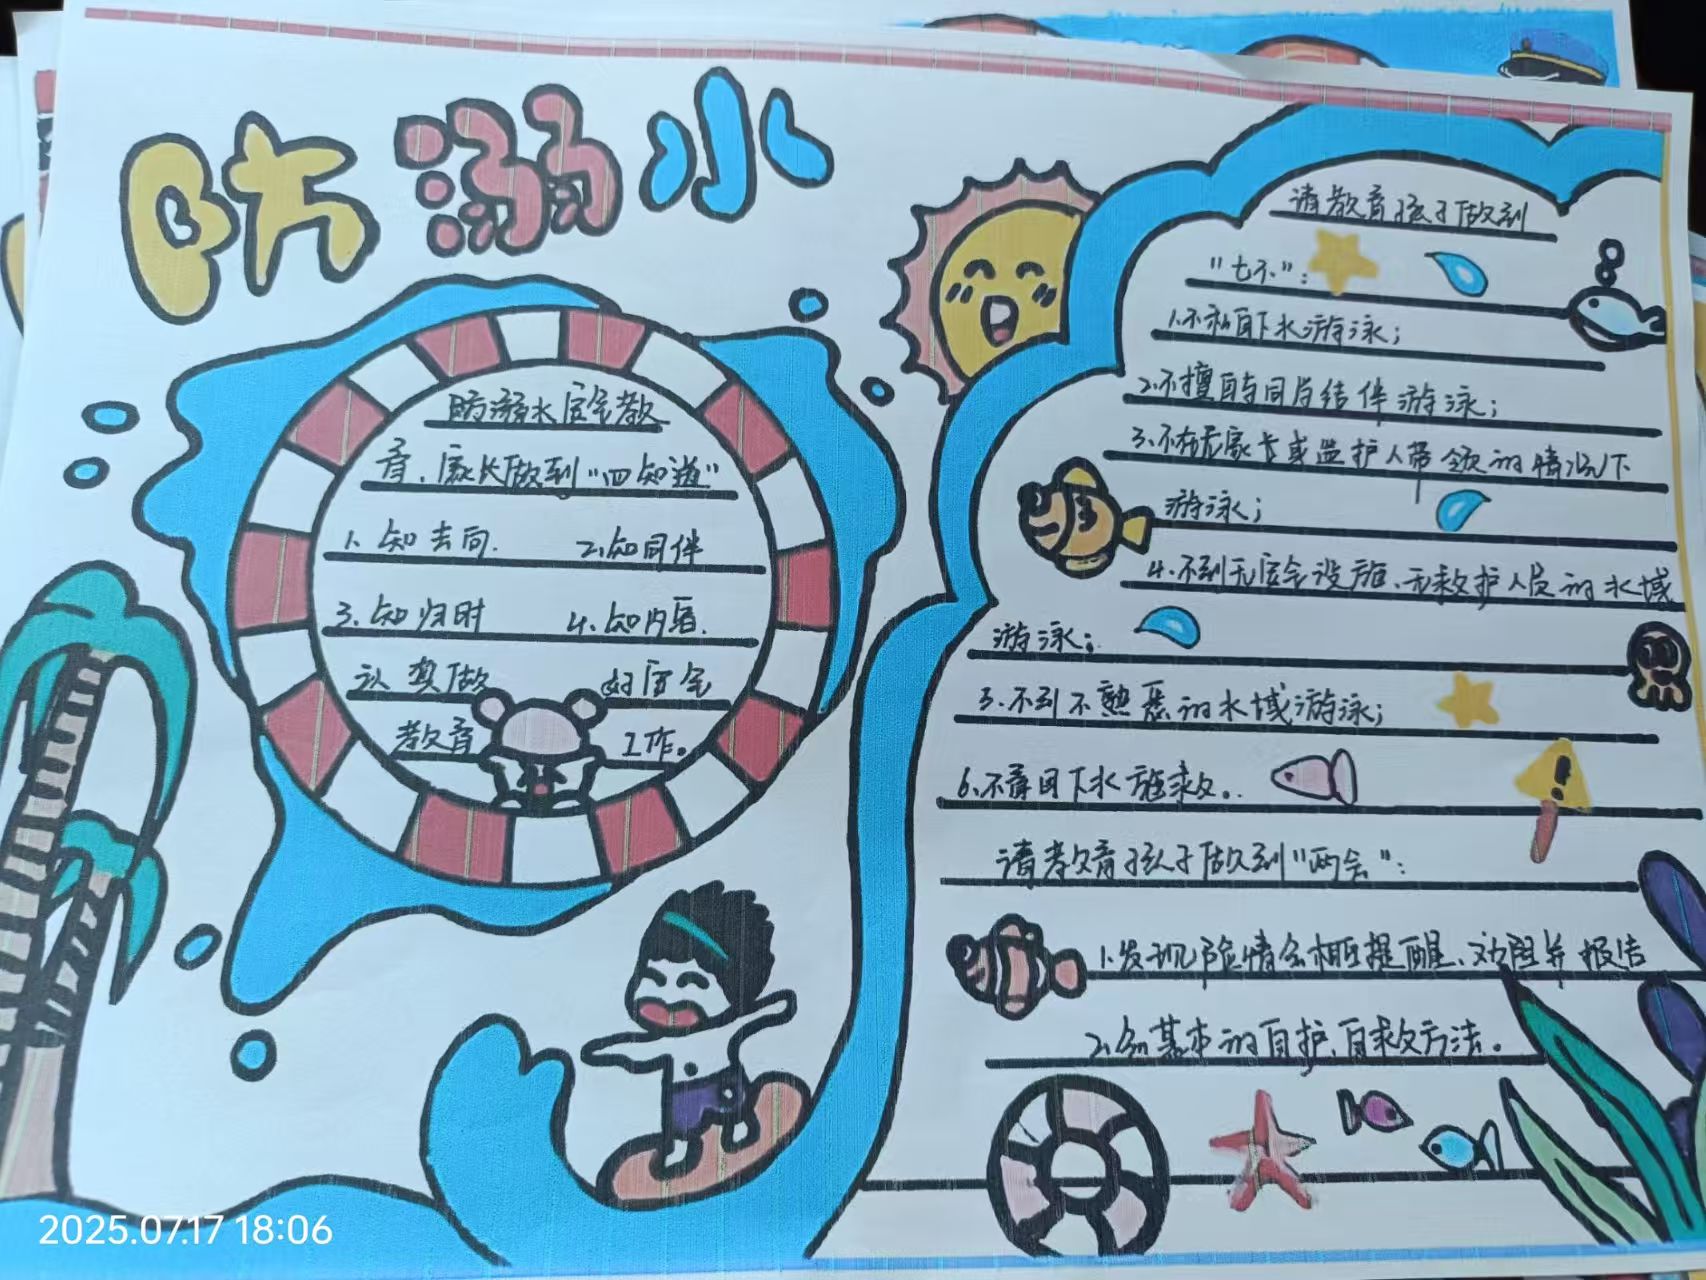 防溺水
防溺水安全教
育,家长做到“四知道”
1、知去向. 2、知同伴
3、知归时 4、知内容.
认真做好安全
教育工作。
请教育孩子做到
“七不”:
1.不私自下水游泳;
2.不擅自与同与结伴游泳;
3.不在无家长或监护人带领的情况下
游泳;
4.不到无安全设施、无救护人员的水域
游泳;
5.不到不熟悉的水域游泳;
6.不盲目下水施救。
请教育孩子做到“两会”:
1.发现险情会相互提醒、劝阻并报告
2.会基本的自护、自救方法。
2025.07.17 18:06